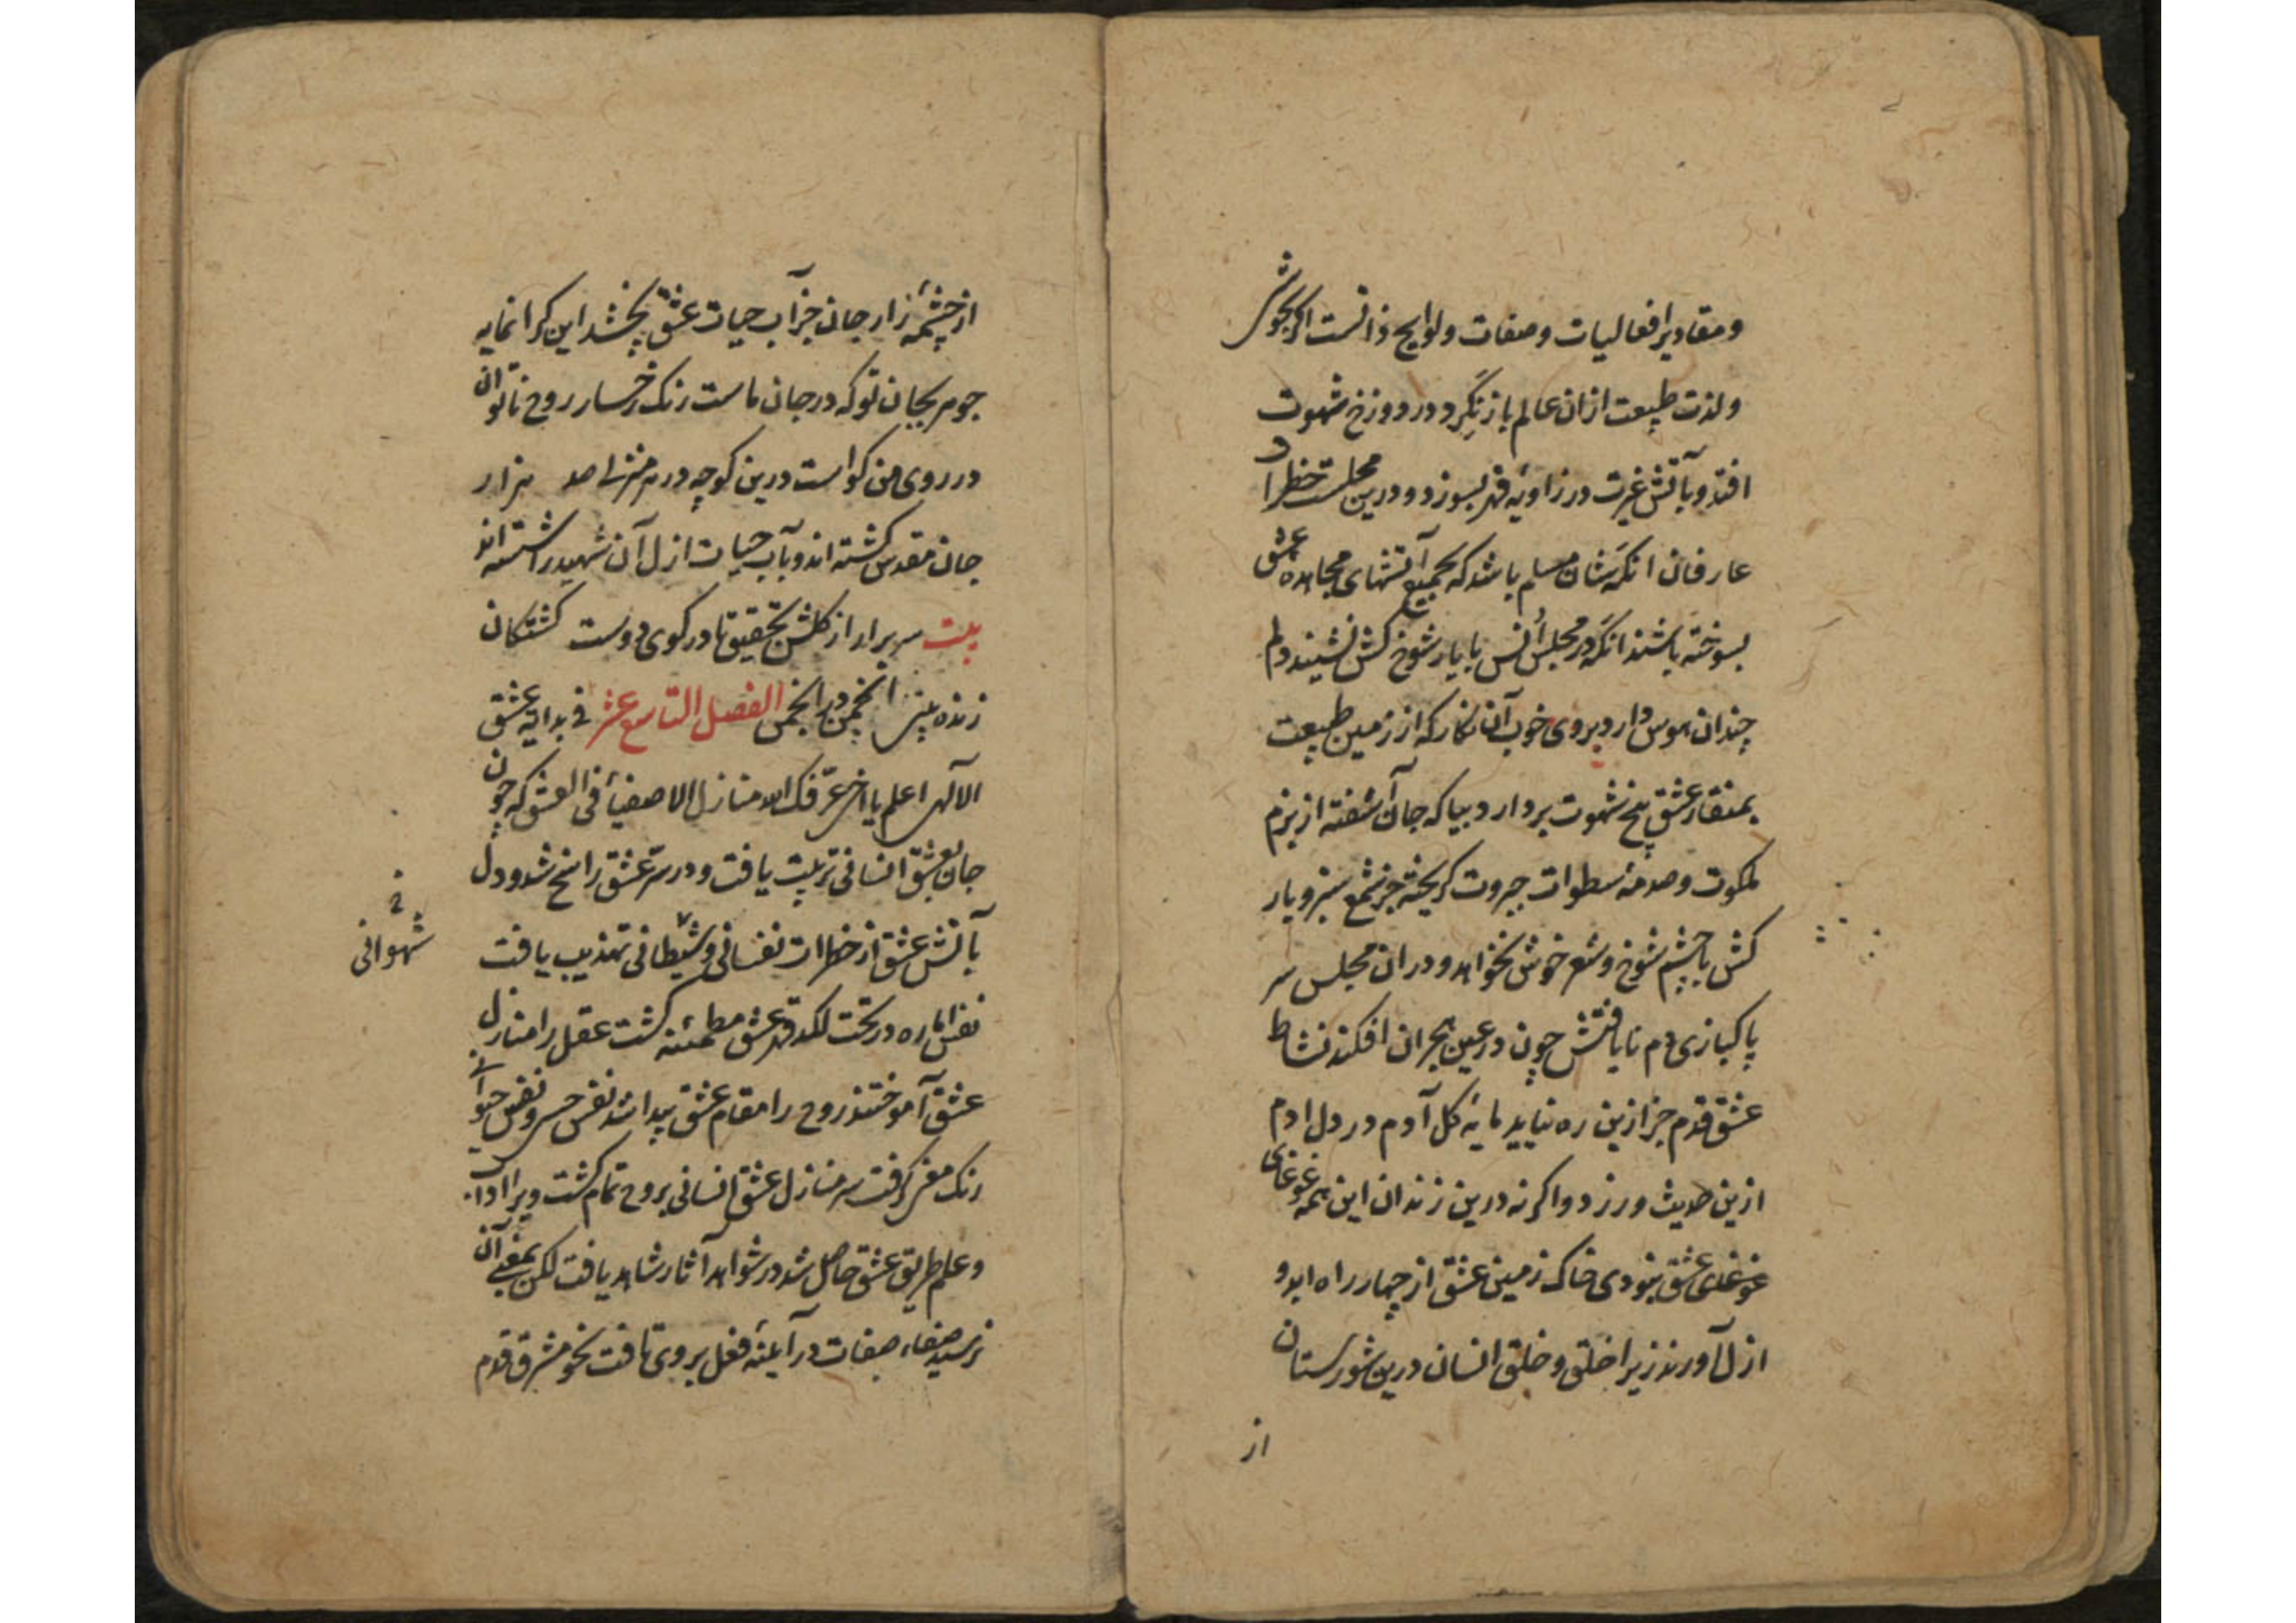 ومقادیر افعالیات وصفات ولوایح ذاتست اگر بجوشش
ولذت طبیعت ازان عالم باز نگرد در دوزخ شهوت
افتد وبآتش غیرت در زاویهٔ قهر بسوزد ودرین مجلست خطراد
عارفان انکه شان مسلم باشد که بجمیع آتشهای مجاهده عشق
بسوخته باشند انکه در مجلس اُنس با یار شوخ کش نشیند دلم
چندان هوس دارد بروی خوب آن نکار که از زمین طبیعت
بمنقار عشق بیخ شهوت بردارد بیا که جان آشفته از بزم
ملکوت وصدمهٔ سطوات جبروت کریخته جز شمع سبز و یار
کش با چشم شوخ وشعر خوش نخواهد ودران مجلس سر
پاکبازی دم نایافتش چون در عین هجران افکند نشاط
عشق قدم جز ازین ره نیاید مایهٔ کل آدم در دل ادم
ازین حدیث ورزد واکرنه درین زندان این همه غوغای
غوغای عشق نبودی خاک زمین عشق از چهار راه ابد و
ازل آورند زیرا خلق وخلق انسان درین شورستان
از
از چشمه زار جان جز آب حیات عشق نچشد این کرانمایه
جوهر بجان تو که در جان ماست رنک رخسار روح ناتوان
در روی من کواست درین کوچه در هر منزلی صد هزار
جان مقدس کشته اند وبآب حیات ازل آن شهید را شسته اند
بیت سر برار از کلشن تحقیق تا در کوی دوست کشتکان
زنده بینی انجمن در انجمن الفصل التاسع عشر فی بدایه عشق
الالهی اعلم یا اخی عرّفک الله منازل الاصفیاء فی العشق که چون
جان بعشق انسانی تربیت یافت ودر سرّ عشق راسخ شد ودل
بآتش عشق از خطرات نفسانی وشیطانی تهذیب یافت
شهوانی
نفس اماره در تحت لکد قهر عشق مطمئنه کشت عقل را منازل
عشق آموختند روح را مقام عشق پیدا شد نفس حسی ونفس حیوانی
رنک مغز کرفت سر منازل عشق انسانی بروح تمام کشت ویرا ادا
وعلم طریق عشق حاصل شد در شواهد آثار شاهد یافت لکن بمعنی آن
نرسید صفاء صفات در آیینه فعل بروی تافت نحو مشرق قدم